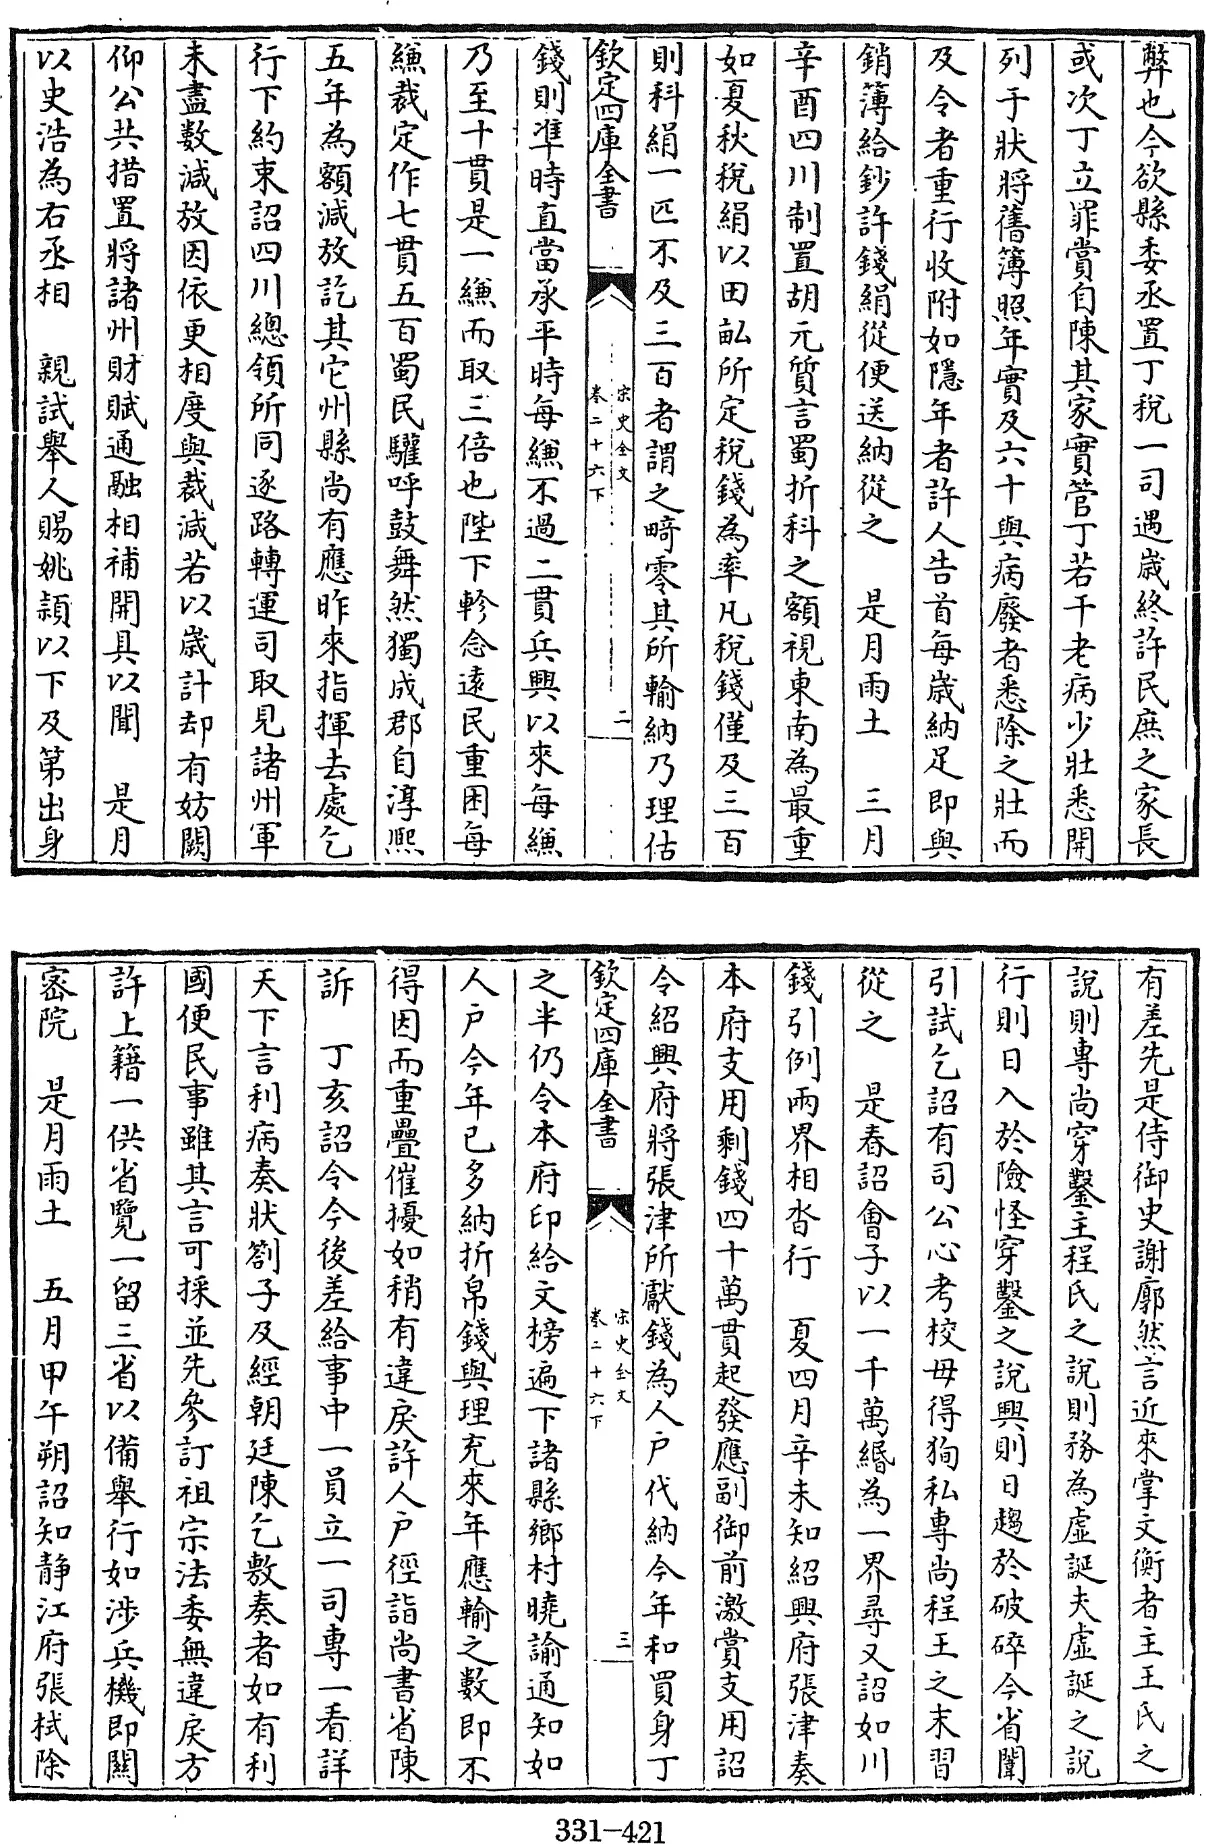 弊也今欲縣委丞置丁稅一司遇歳終許民庶之家長
或次丁立罪賞自陳其家實管丁若干老病少壯悉開
列于狀將舊簿照年實及六十與病廢者悉除之壯而
及令者重行收附如隱年者許人告首每歳納足即與
銷簿給鈔許錢絹從便送納從之　是月雨土　三月
辛酉四川制置胡元質言蜀折科之額視東南為最重
如夏秋稅絹以田畝所定稅錢為率凡稅錢僅及三百
則科絹一匹不及三百者謂之畸零其所輸納乃理估
欽定四庫全書　宋史全文　卷二十六下　二
錢則準時直當承平時每縑不過二貫兵興以來每縑
乃至十貫是一縑而取三倍也陛下軫念遠民重困每
縑裁定作七貫五百蜀民驩呼鼓舞然獨成郡自淳熙
五年為額減放訖其它州縣尚有應昨來指揮去處乞
行下約束詔四川總領所同逐路轉運司取見諸州軍
未盡數減放因依更相度與裁減若以歳計却有妨闕
仰公共措置將諸州財賦通融相補開具以聞　是月
以史浩為右丞相　親試舉人賜姚穎以下及第出身
有差先是侍御史謝廓然言近來掌文衡者主王氏之
說則專尚穿鑿主程氏之說則務為虛誕夫虛誕之說
行則日入於險怪穿鑿之說興則日趨於破碎今省闈
引試乞詔有司公心考校毋得狥私專尚程王之末習
從之　是春詔會子以一千萬緡為一界尋又詔如川
錢引例兩界相沓行　夏四月辛未知紹興府張津奏
本府支用剩錢四十萬貫起發應副御前激賞支用詔
令紹興府將張津所獻錢為人戶代納今年和買身丁
欽定四庫全書　宋史全文　卷二十六下　三
之半仍令本府印給文榜遍下諸縣鄉村曉諭通知如
人戶今年已多納折帛錢與理充來年應輸之數即不
得因而重疊催擾如稍有違戾許人戶徑詣尚書省陳
訴　丁亥詔令今後差給事中一員立一司專一看詳
天下言利病奏狀劄子及經朝廷陳乞敷奏者如有利
國便民事雖其言可採並先參訂祖宗法委無違戾方
許上籍一供省覽一留三省以備舉行如涉兵機即關
密院　是月雨土　五月甲午朔詔知静江府張栻除
331-421